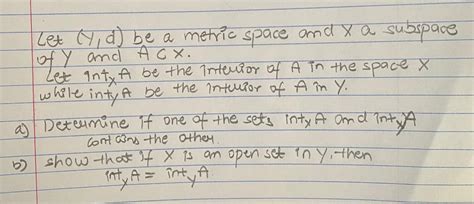 Let (Y,d) be a metric space and X a subspace
of Y and A ⊂ X.
Let int_x A be the interior of A in the space X
while int_y A be the interior of A in Y.
a) Determine if one of the sets int_x A and int_y A
contains the other.
b) show that if X is an open set in Y, then
int_y A = int_y A